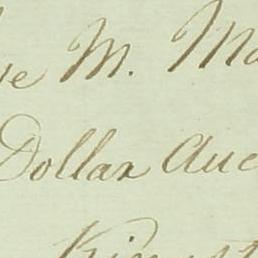 ve M. Ma
Dollar Auc
Kingst